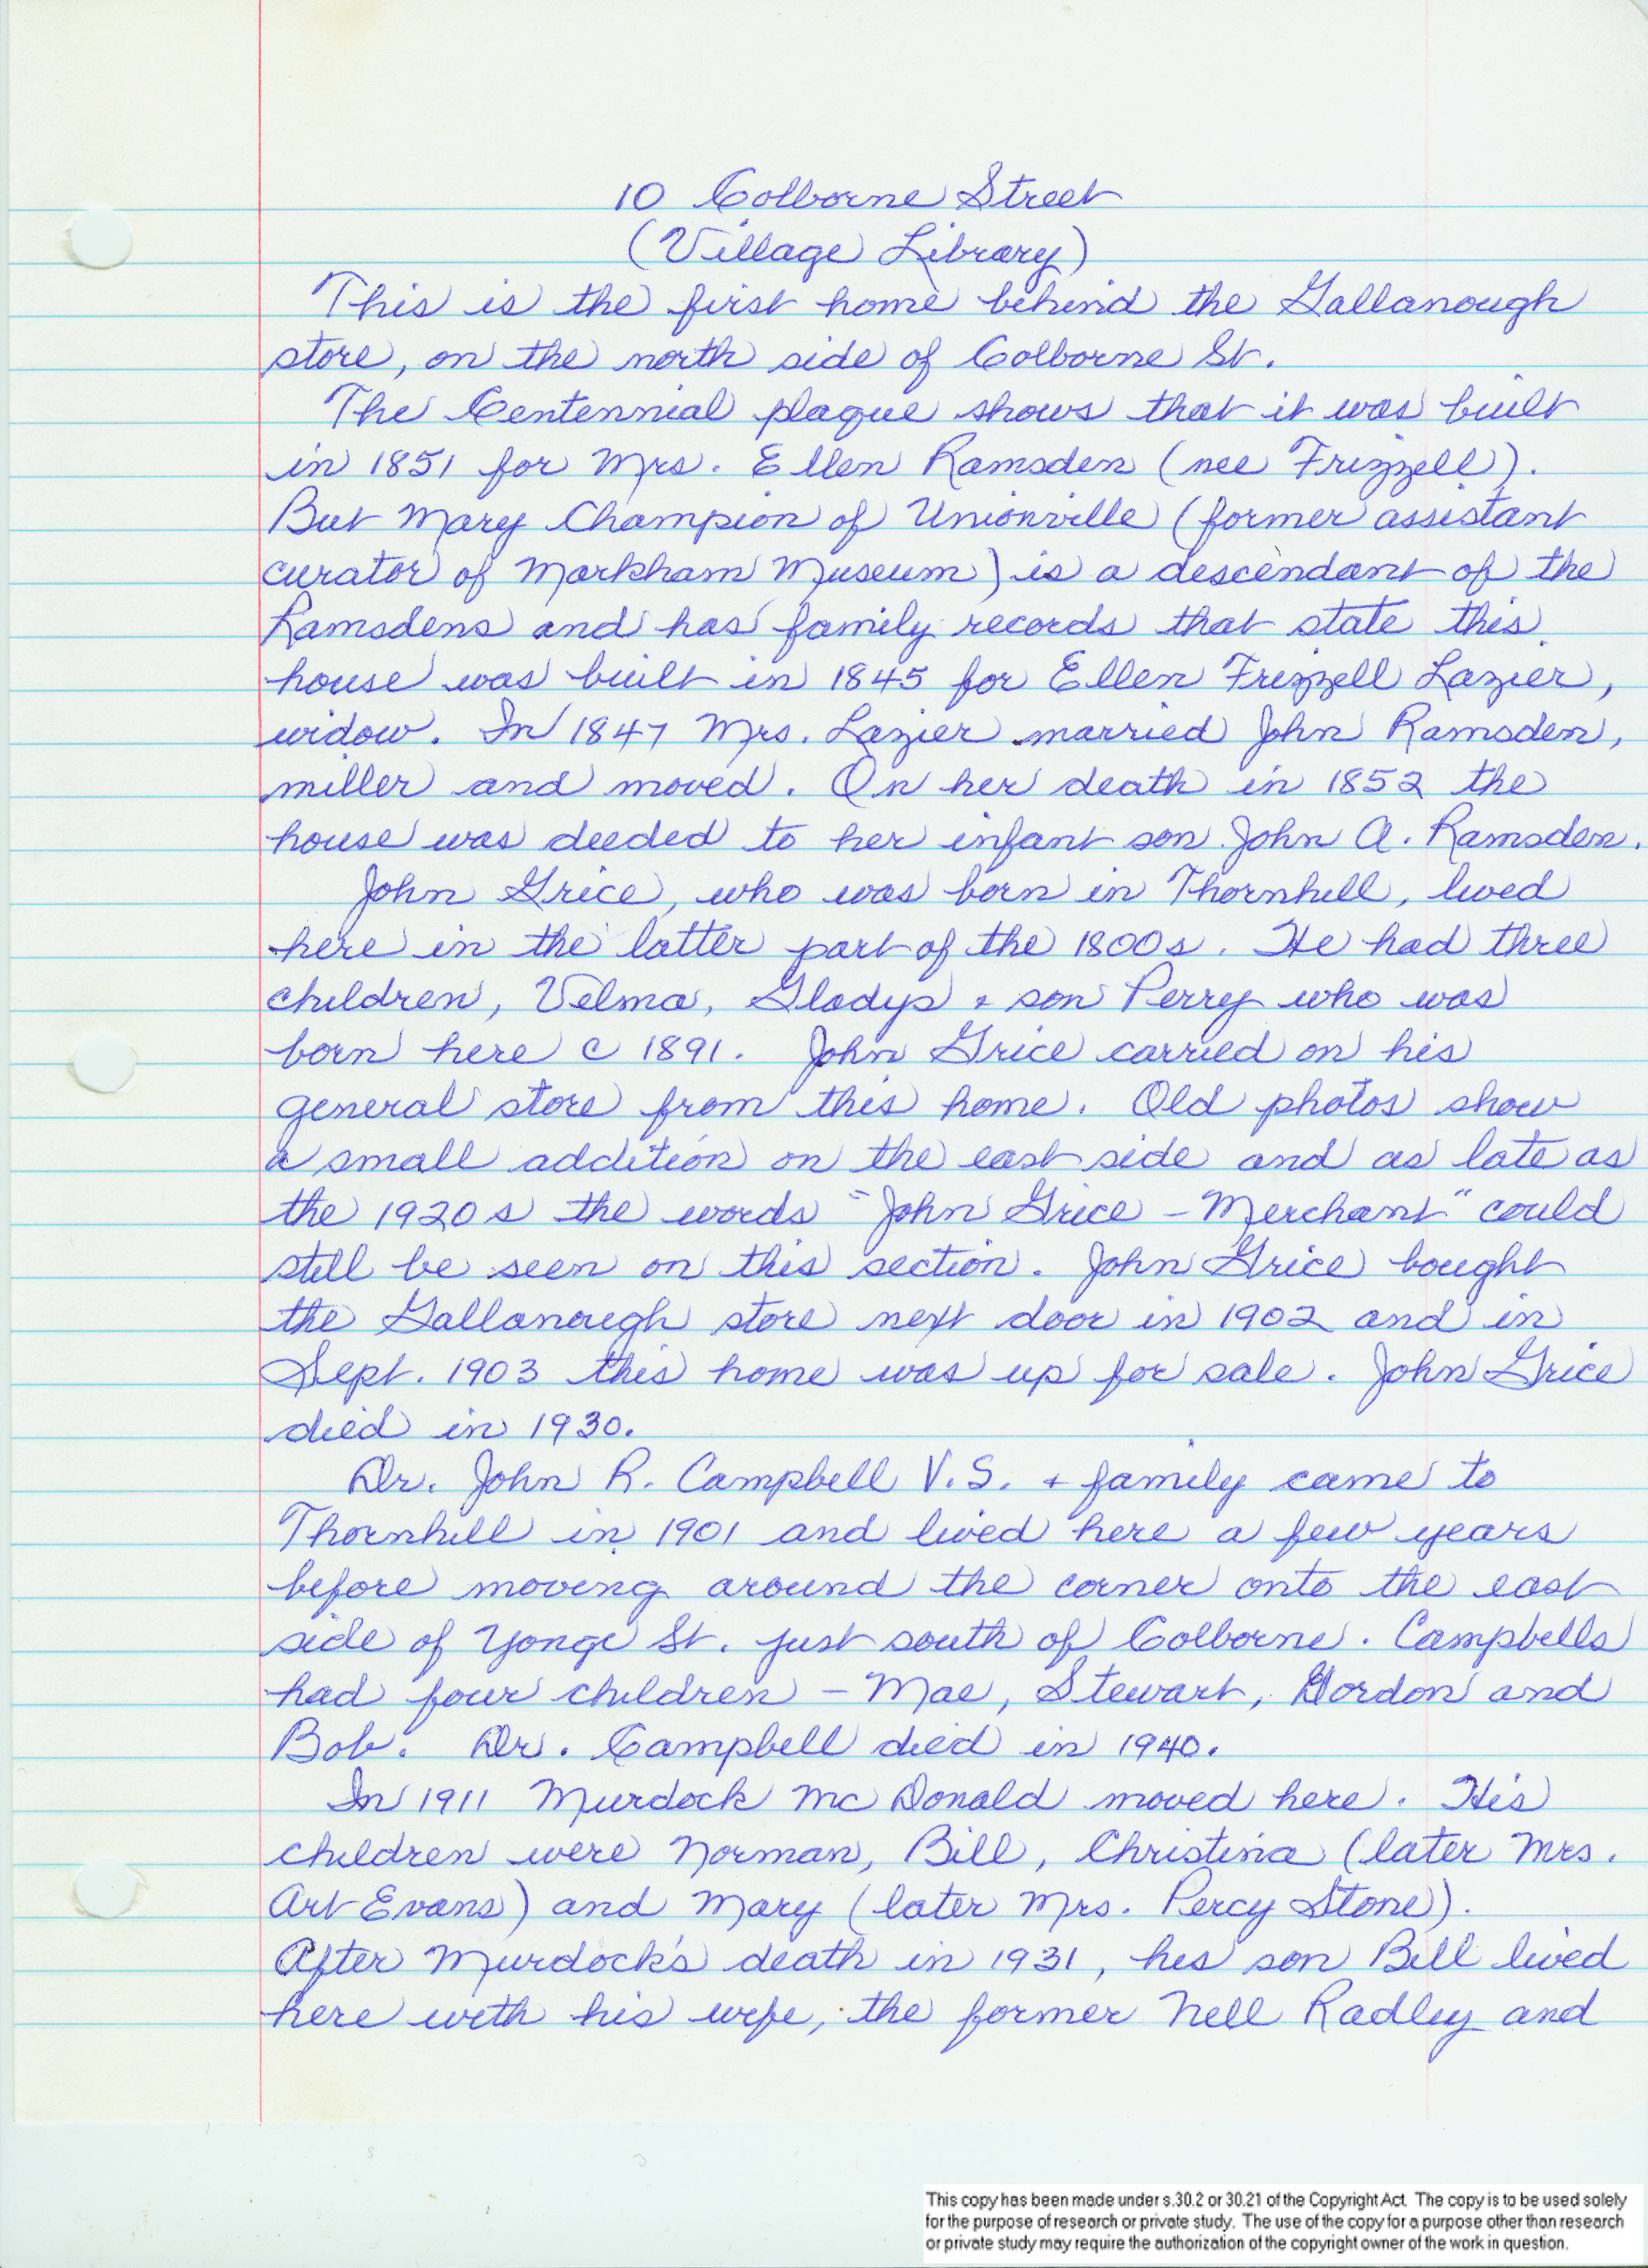 10 Colborne Street
(Village Library)
This is the first home behind the Gallanough
store, on the north side of Colborne St.
The Centennial plaque shows that it was built
in 1851 for Mrs. Ellen Ramsden (nee Frizzell).
But Mary Champion of Unionville (former assistant
curator of Markham Museum) is a descendant of the
Ramsdens and has family records that state this
house was built in 1845 for Ellen Frizzell Lazier,
widow. In 1847 Mrs. Lazier married John Ramsden,
miller and moved. On her death in 1852 the
house was deeded to her infant son John A. Ramsden.
John Grice, who was born in Thornhill, lived
here in the latter part of the 1800s. He had three
children, Velma, Gladys + son Perry who was
born here c 1891. John Grice carried on his
general store from this home. Old photos show
a small addition on the east side and as late as
the 1920s the words "John Grice - Merchant" could
still be seen on this section. John Grice bought
the Gallanough store next door in 1902 and in
Sept. 1903 this home was up for sale. John Grice
died in 1930.
Dr. John R. Campbell V.S. + family came to
Thornhill in 1901 and lived here a few years
before moving around the corner onto the east
side of Yonge St. just south of Colborne. Campbells
had four children - Mae, Stewart, Gordon and
Bob. Dr. Campbell died in 1940.
In 1911 Murdock McDonald moved here. His
children were Norman, Bill, Christina (later Mrs.
Art Evans) and Mary (later Mrs. Percy Stone).
After Murdock's death in 1931, his son Bill lived
here with his wife, the former Nell Radley and
This copy has been made under s.30.2 or 30.21 of the Copyright Act. The copy is to be used solely
for the purpose of research or private study. The use of the copy for a purpose other than research
or private study may require the authorization of the copyright owner of the work in question.